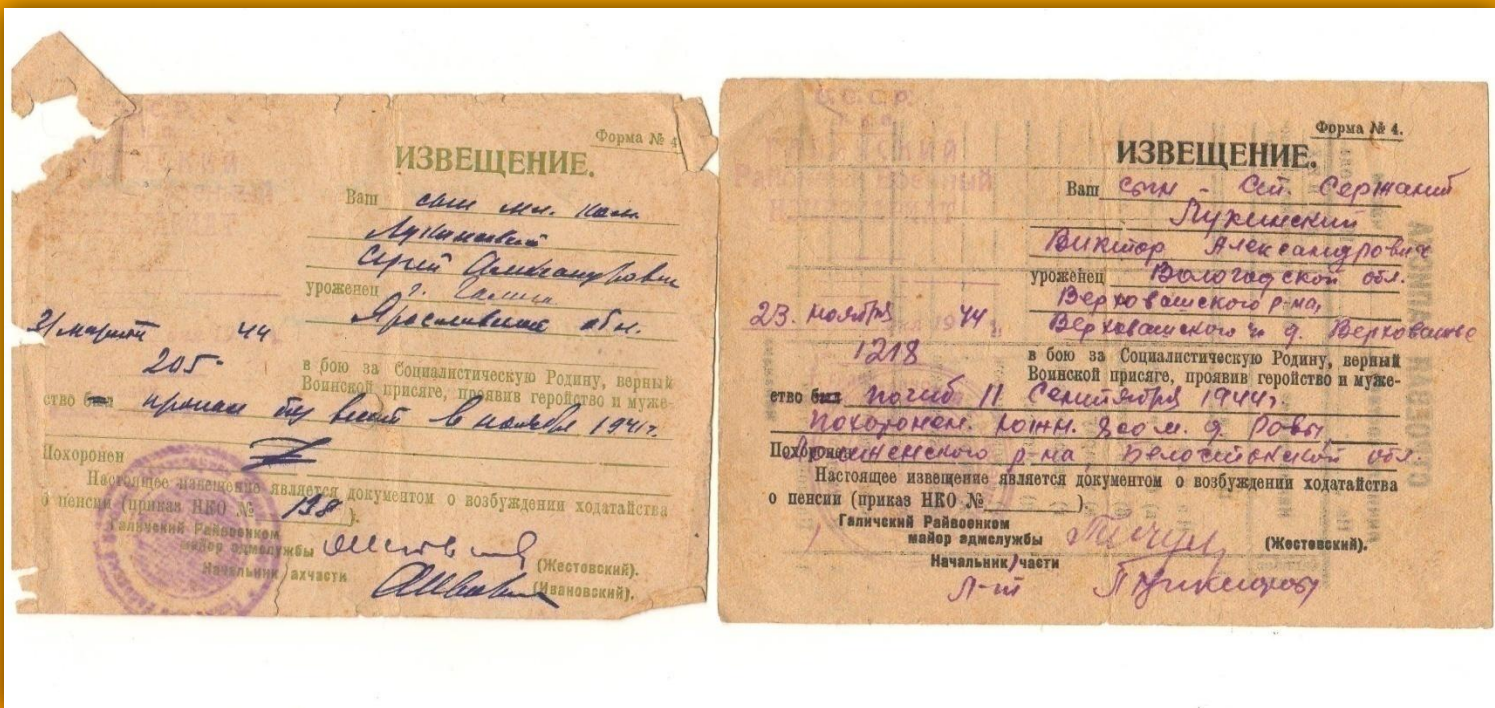 Форма № 4
ИЗВЕЩЕНИЕ.
Ваш сын мл. ком.
Лукинский
Сергей Александрович
уроженец г. Галич
Ярославской обл.
31 марта 44
205
в бою за Социалистическую Родину, верный
Воинской присяге, проявив геройство и муже-
ство был пропал без вести в ноябре 1941 г.
Похоронен
Настоящее извещение является документом о возбуждении ходатайства
о пенсии (приказ НКО № 198).
Галичский Райвоенком
майор адмслужбы (Жестовский).
Начальник ахчасти
(Ивановский).
С.С.С.Р.
Форма № 4.
ИЗВЕЩЕНИЕ.
Ваш сын - Ст. Сержант
Лукинский
Виктор Александрович
уроженец Вологодской обл.
Верховажского р-на,
Верховажского д. Верховажье
23. ноября 1944 г.
1218
в бою за Социалистическую Родину, верный
Воинской присяге, проявив геройство и муже-
ство был погиб 11 Сентября 1944 г.
похоронен. южн. 800 м. д. Ровы
Похоронен р-на, Белостокской обл.
Настоящее извещение является документом о возбуждении ходатайства
о пенсии (приказ НКО № ).
Галичский Райвоенком
майор адмслужбы (Жестовский).
Начальник части
Л-нт